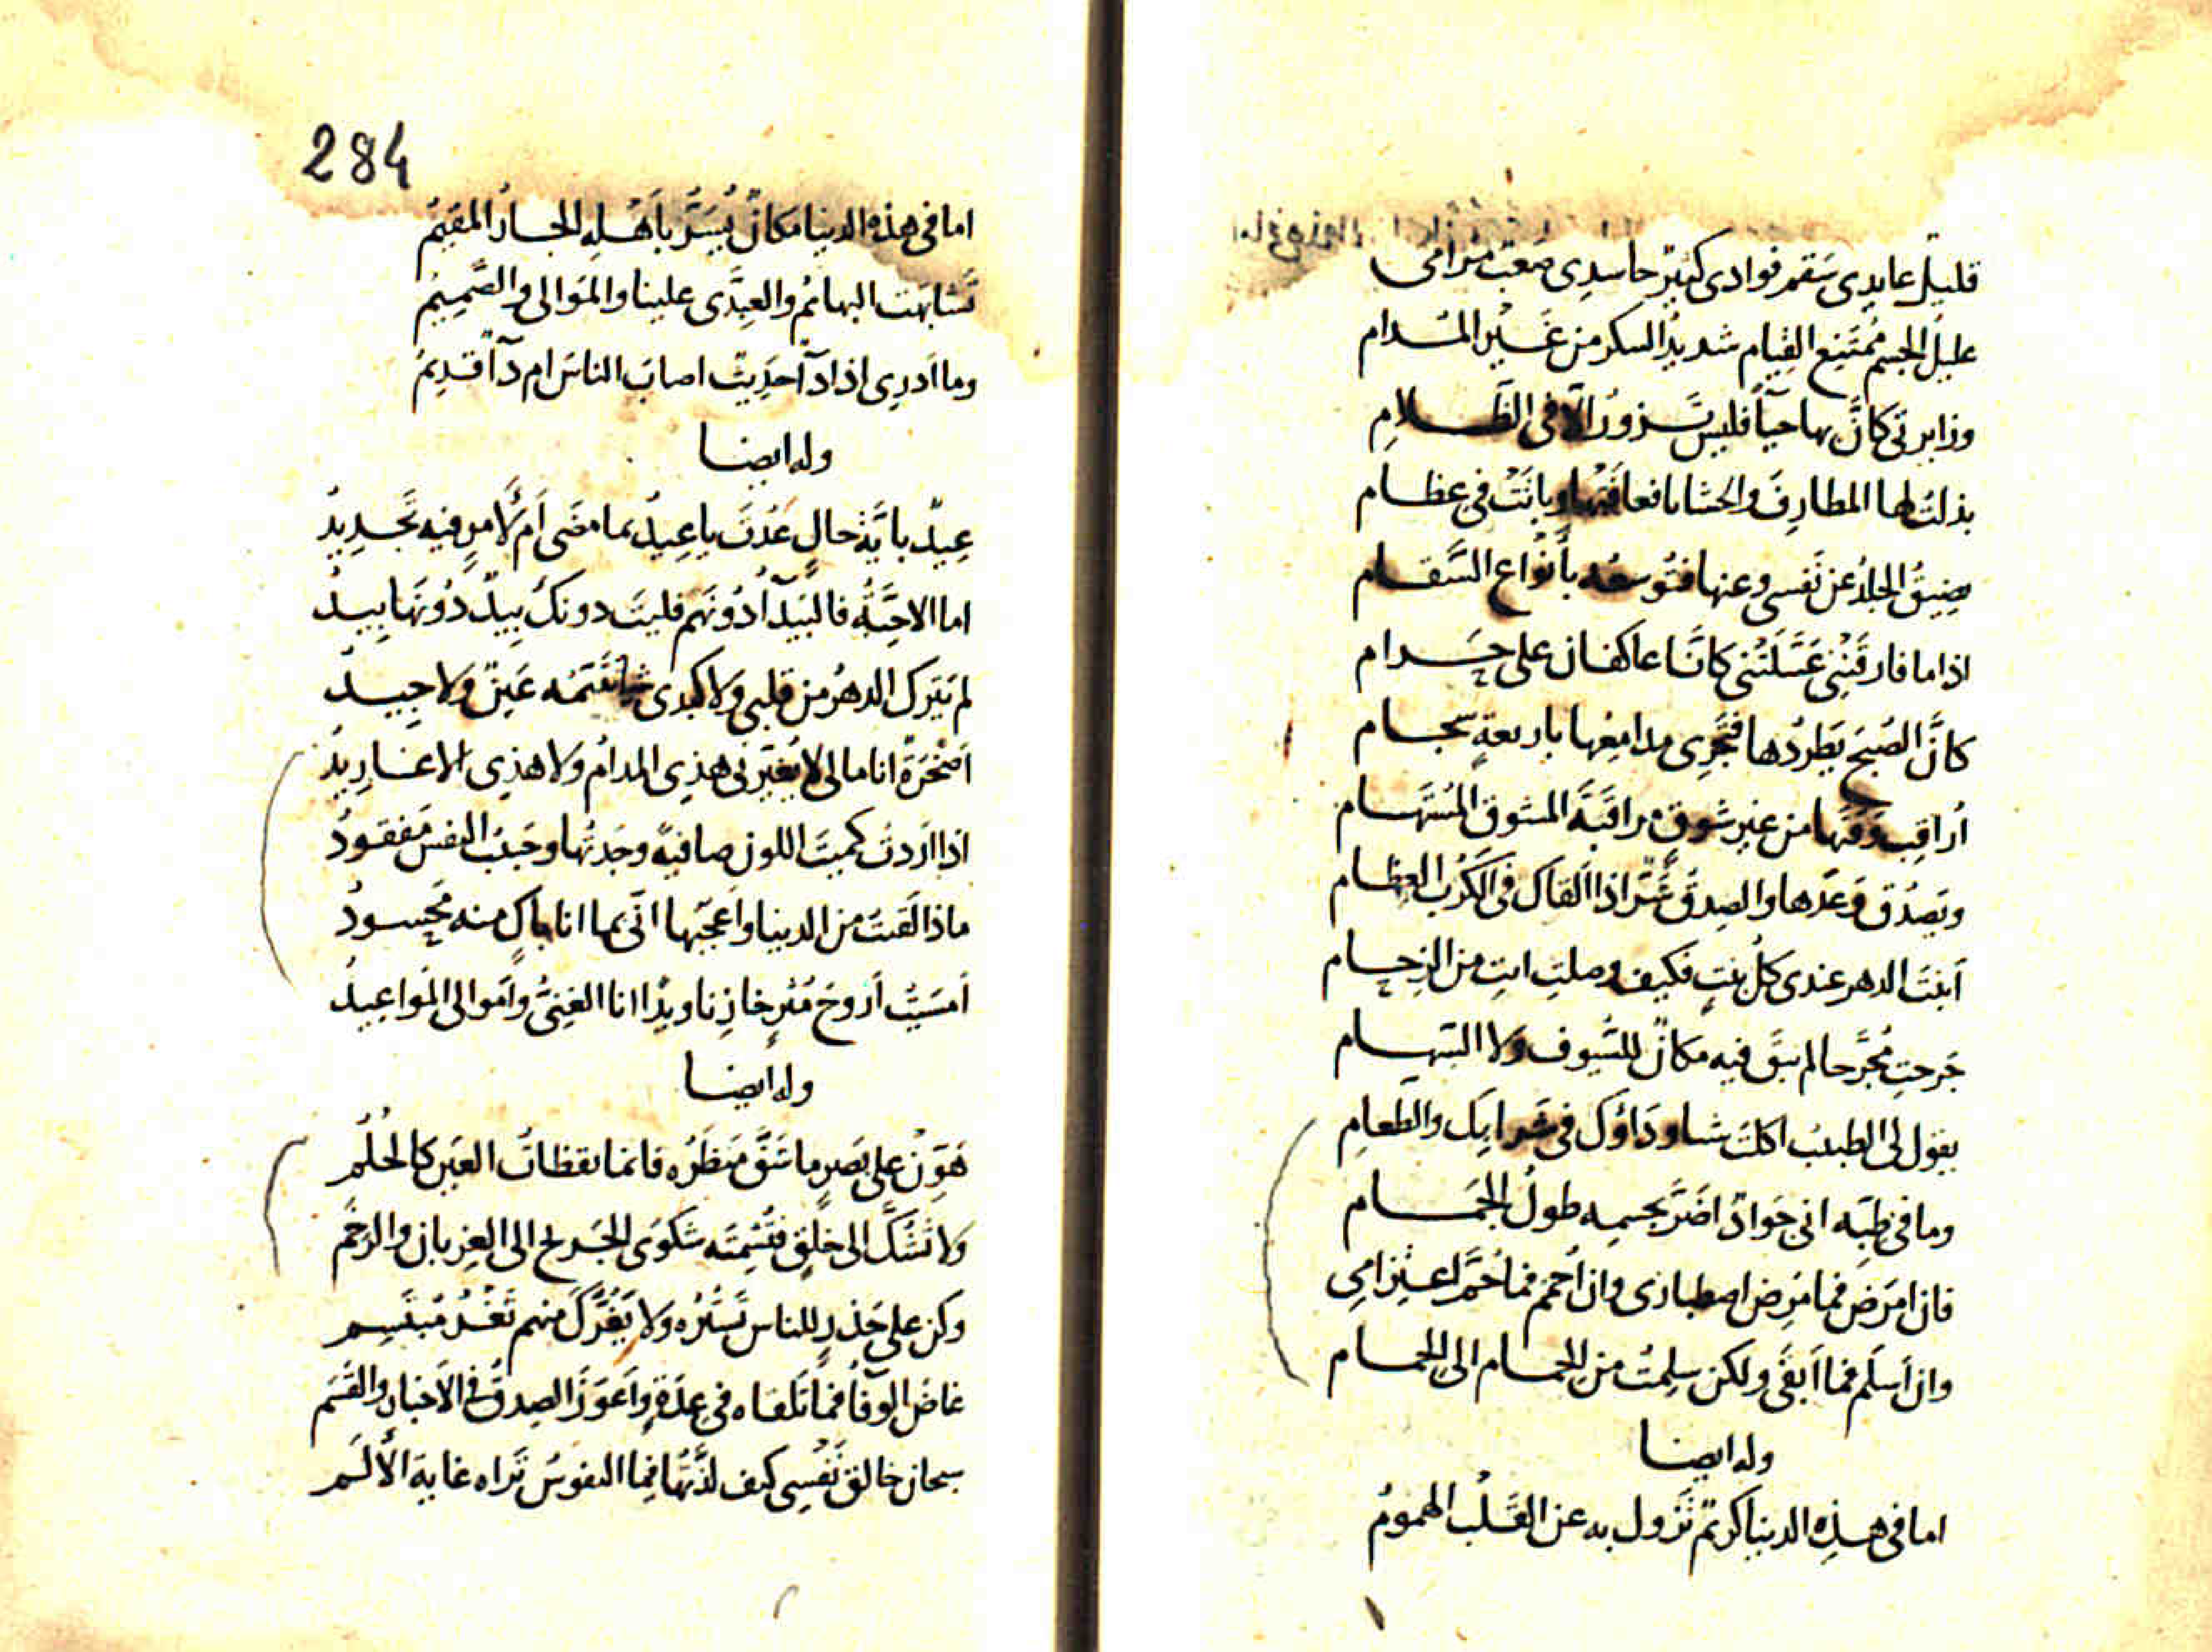 قليل عايدى سَقم فوادى كثير حاسدى صَعبٌ مرامى
عليل الجسم مُمتَنِع القيام شديدُ السكر من غَير المُدام
وزايرتى كانَّ بها حياً فليس تَزورُ الّا فى الظَلامِ
بذلتُ لها المطارِفَ والحشايا فعافتها وباتَتْ فى عظام
يضِيقُ الجلدُ عن نَفسى وعنها فتُوسعُه بأنواع السَّقام
اذا ما فارقَتْنِى غَسَّلَتْنى كانَّا عاكفان على حَرام
كانَّ الصُبحَ يَطردُها فتَجرِى مدامِعُها باربعةٍ سجام
اُراقِب وقتَها من غير شوقٍ مراقَبَةَ المشوق المُستَهام
ويَصدُق وَعدُها والصدقُ شرٌّ اذا القاك فى الكُرَب العِظام
اَبنتَ الدهر عندى كلُ بنتٍ فكيف وصلتِ انتِ من الزحام
جَرحتِ مُجرَّحا لم يبقَ فيه مكانٌ للسُيوف ولا السهام
يقول لى الطبيبُ اكلتَ شيا وداؤك فى شرابِك والطَعامِ
وما فى طِبّه انى جَوادٌ اضَرَّ بجسمِه طولُ الجَمام
فان امرَض فما مُرِض اصطبارى وان اُحمَم فما حُمَّ اعتزامى
وان اَسلَم فما اَبقَى ولكن سلِمتُ من الحمام الى الحمام
وله ايضا
اما فى هذِه الدنيا كريمٌ تَزول به عن القَلب الهمومُ
284
اما فى هذه الدنيا مكانٌ يُسَرُّ باَهْلِهِ الجارُ المقيمُ
تَشابَهَت البهائمُ والعِبِدَّى علينا والمَوالى والصَّميمُ
وما اَدرِى اذا دآ حَدِيثٌ اصابَ الناسَ ام دآ قَديمُ
وله ايضا
عِيدٌ بايَّة حالٍ عُدْتَ يا عِيدُ بما مضَى اَم لاَمرٍ فيه تَجديدُ
اما الاحِبَّةُ فالبَيدآ دُونَهم فليتَ دونك بِيدٌ دُونَها بِيدُ
لم يَترك الدهرُ من قلبى ولا كبدى شيا تُتَيّمُه عَينٌ ولا جِيدُ
اَصَخْرَةٌ انا مالى لا تُغيّرنى هذِى المدامُ ولا هذِى الاغاريدُ
اذا اَردتُ كميتَ اللون صافيةً وجَدتُها وحَبيبُ النفس مَفقودُ
ماذا لَقيتُ من الدنيا واَعجَبُها انّى بما انا باكٍ منه مَحسودُ
اَمسَيتُ اَروحَ مُثرٍ خازِنا ويدًا انا الغنِىُّ واَموالى المَواعِيدُ
وله ايضا
هَوّنْ على بَصَرٍ ما شَقَّ مَنظَرُه فانما يقظاتُ العَين كالحُلُم
وَلا تَشَكَّ الى خَلقٍ فتُشمِتَه شكوَى الجَريح الى الغِربان والرخَم
وكن على حَذرٍ للناس تَستُرُه ولا يَغُرَّك منهم ثَغْرُ مُبتَسِم
غاضَ الوفآ فما تَلقاه فى عِدَةٍ واَعوَزَ الصدقُ فى الاَخبار والقسَم
سبحان خالق نَفْسِى كيف لذَّتُها فيما النفوسُ تَراه غاية الاَلَم